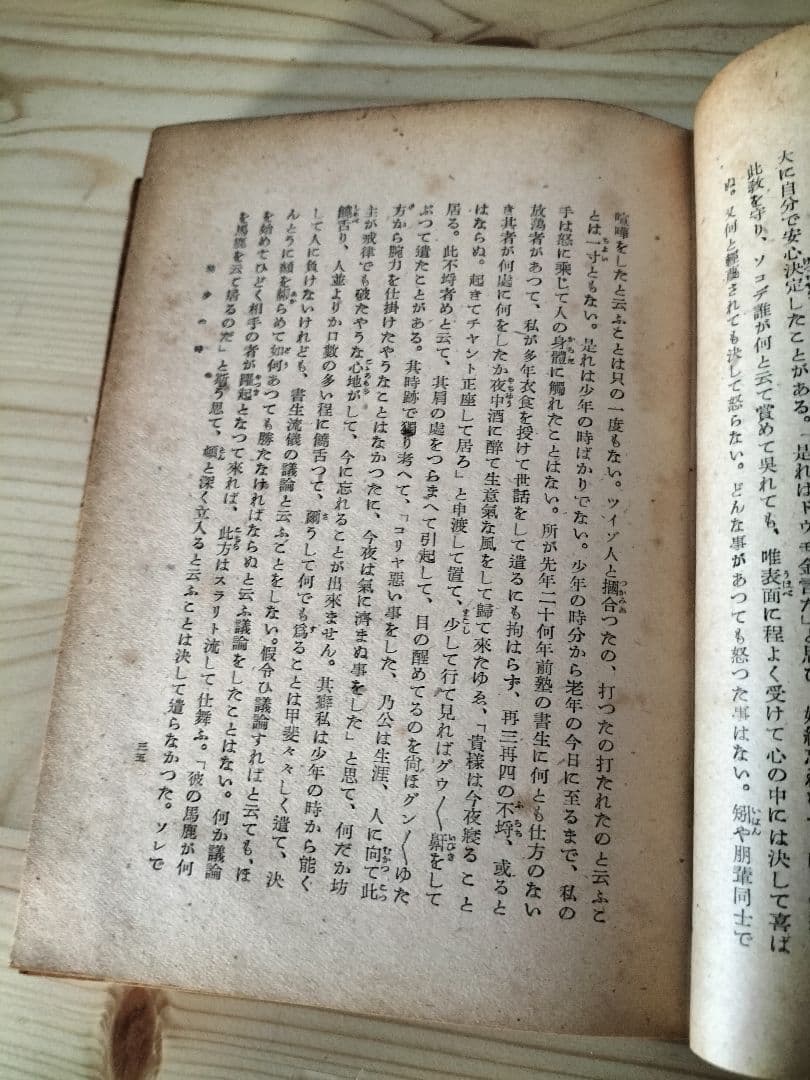 大に自分で安心決定したことがある。
此教を守り、ソコデ誰が何と云て賞めて呉れても、唯表面に程よく受けて心の中には決して喜ば
ぬ。又何と輕蔑されても決して怒らない。どんな事があつても怒つた事はない。矧や朋輩同士で
喧嘩をしたと云ふことは只の一度もない。ツイゾ人と摑合つたの、打つたの打たれたのと云ふこ
とは一寸ともない。是れは少年の時ばかりでない。少年の時分から老年の今日に至るまで、私の
手は怒に乘じて人の身體に觸れたことはない。所が先年二十何年前塾の書生に何とも仕方のない
放蕩者があつて、私が多年衣食を授けて世話をして遣るにも拘はらず、再三再四の不埒、或ると
き其者が何處に何をしたか夜中酒に醉て生意氣な風をして歸て來たゆゑ、「貴樣は今夜寢ること
はならぬ。起きてチャント正座して居ろ」と申渡して置て、少して行て見ればグウ〱鼾をして
居る。此不埒者めと云て、其肩の處をつらまへて引起して、目の醒めてるのを尙ほグン〱ゆた
ぶつて遣たことがある。其時跡で獨り考へて、「コリャ惡い事をした、乃公は生涯、人に向て此
方から腕力を仕掛けたやうなことはなかつたに、今夜は氣に濟まぬ事をした」と思て、何だか坊
主が戒律でも破たやうな心地がして、今に忘れることが出來ません。其癖私は少年の時から能く
饒舌り、人並よりか口數の多い程に饒舌つて、爾うして何でも爲ることは甲斐々々しく遣て、決
して人に負けないけれども、書生流儀の議論と云ふことをしない。假令ひ議論すればと云ても、ほ
んとうに顏を赧らめて如何あつても勝たなければならぬと云ふ議論をしたことはない。何か議論
を始めてひどく相手の者が躍起となつて來れば、此方はスラリト流して仕舞ふ。「彼の馬鹿が何
を馬鹿を云て居るのだ」と斯う思て、頓と深く立入ると云ふことは決して遣らなかつた。ソレで
幼少の時
三五